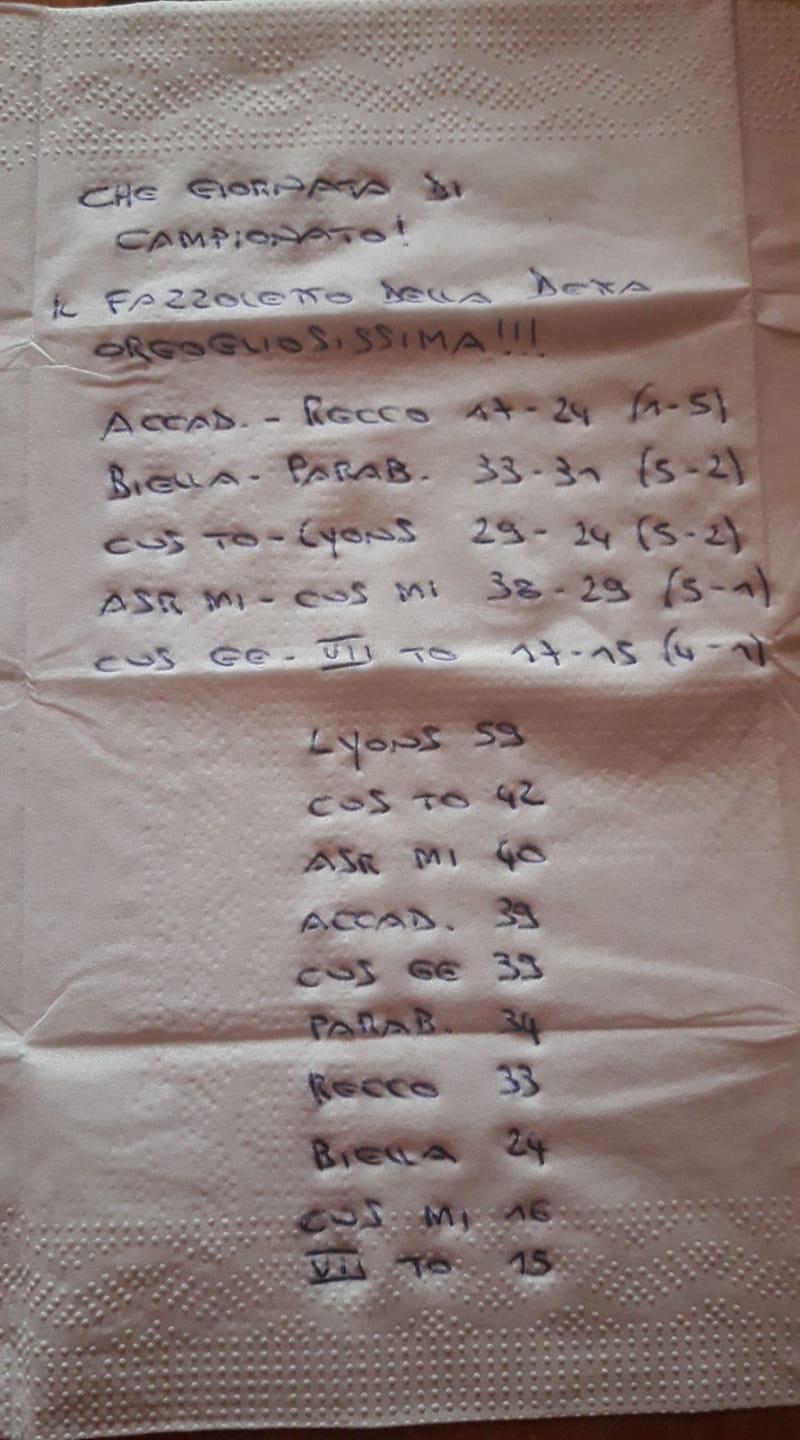 CHE GIORNATA DI
CAMPIONATO!
IL FAZZOLETTO DELLA DEXA
ORGOGLIOSISSIMA!!!
ACCAD. - RECCO 17-24 (1-5)
BIELLA - PARAB. 33-31 (5-2)
CUS TO - LYONS 29-24 (5-2)
ASR MI - CUS MI 38-29 (5-1)
CUS GE - VII TO 17-15 (4-1)
LYONS 59
CUS TO 42
ASR MI 40
ACCAD. 39
CUS GE 39
PARAB. 34
RECCO 33
BIELLA 24
CUS MI 16
VII TO 15